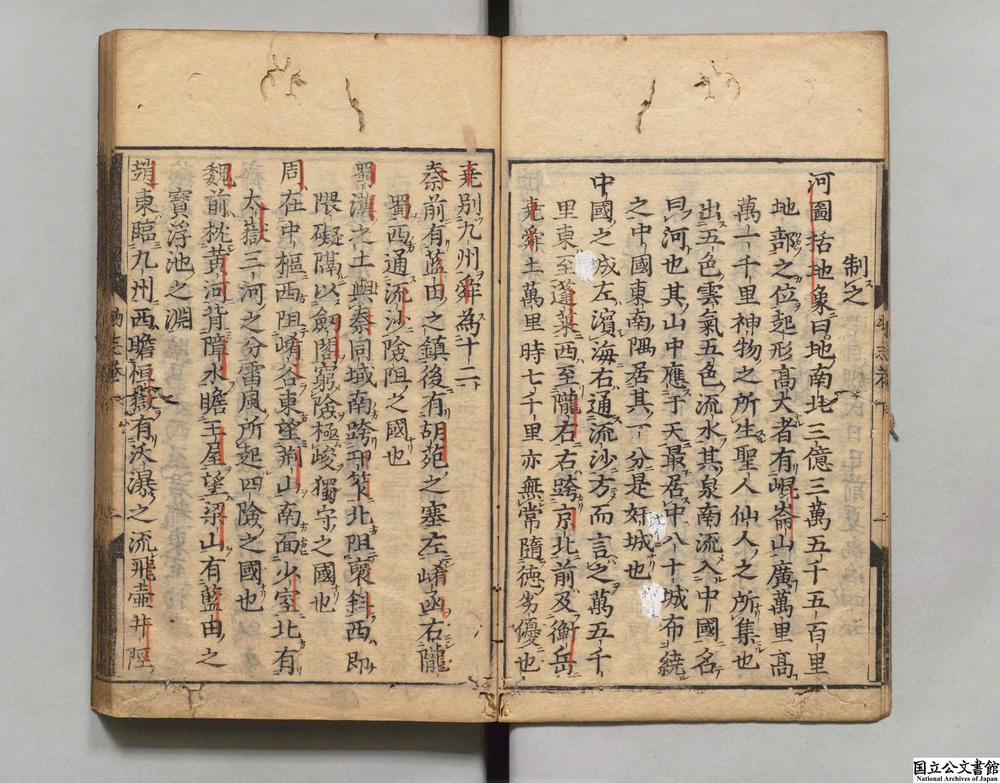 制之
河圖括地象曰地南北三億三萬五千五百里
地部之位起形高大者有崐崙山廣萬里高
萬一千里神物之所生聖人仙人之所集也
出五色雲氣五色流水其泉南流入中國名
曰河也其山中應于天最居中八十城布繞
之中國東南隅居其一分是好城也
中國之城左濱海右通流沙方而言之萬五千
里東至蓬萊西至隴右右跨京北前及衡岳
堯舜土萬里時七千里亦無常隨德劣優也
堯別九州舜為十二
秦前有藍田之鎮後有胡苑之塞左崤函右隴
蜀西通流沙險阻之國也
蜀漢之土與秦同域南跨邛笮北阻褒斜西即
隈礙隔以劍閣窮險極峻獨守之國也
周在中樞西阻崤谷東望荊山南面少室北有
太嶽三河之分雷風所起四險之國也
魏前枕黃河背障水瞻王屋望梁山有藍田之
寶浮池之淵
趙東臨九州西瞻恒嶽有沃瀑之流飛壺井陘
国立公文書館
National Archives of Japan